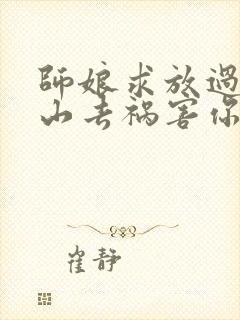 師娘求放過
山去禍害你
崔静